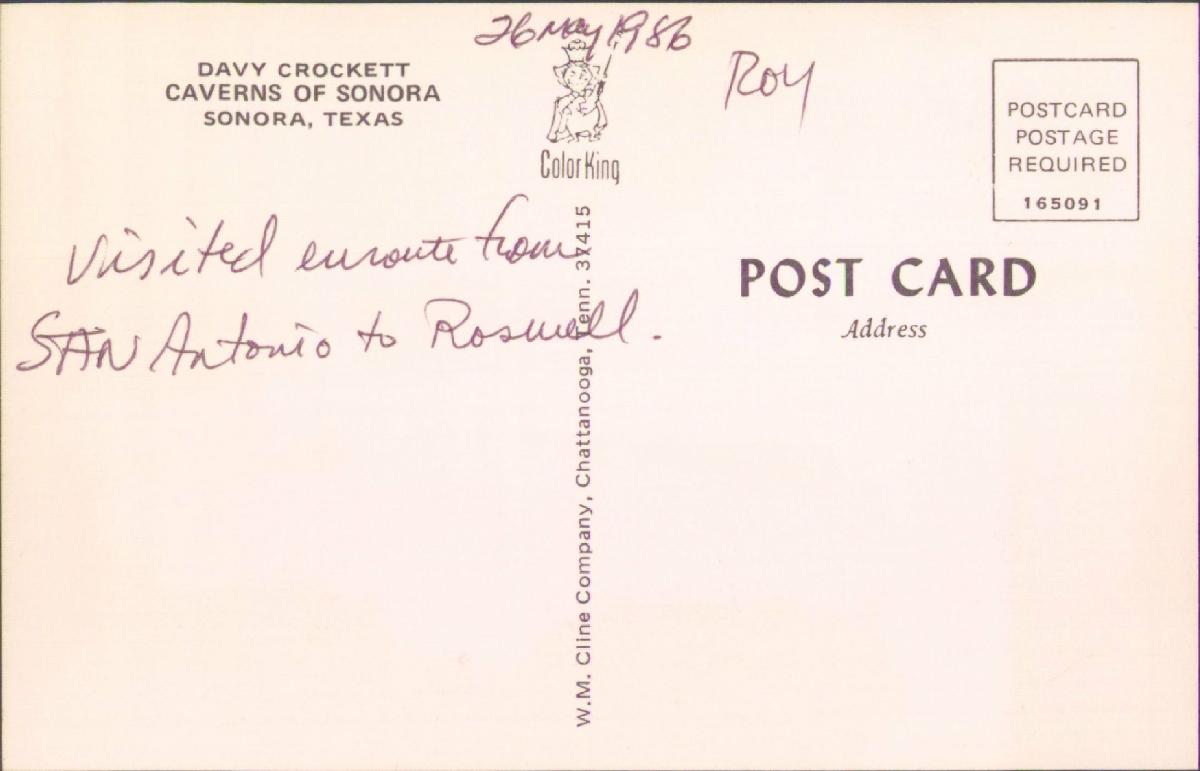 26 May 1986
DAVY CROCKETT
CAVERNS OF SONORA
SONORA, TEXAS
ColorKing
Visited enroute from
SAN Antonio to Roswell.
W.M. Cline Company, Chattanooga, Tenn. 37415
Roy
POSTCARD
POSTAGE
REQUIRED
165091
POST CARD
Address